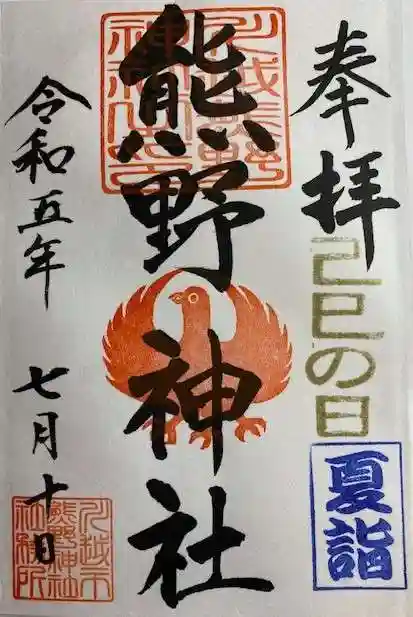 奉拝
己巳の日
夏詣
熊野神社
川越熊野
令和五年 七月十日
川越市
熊野神社
社務所